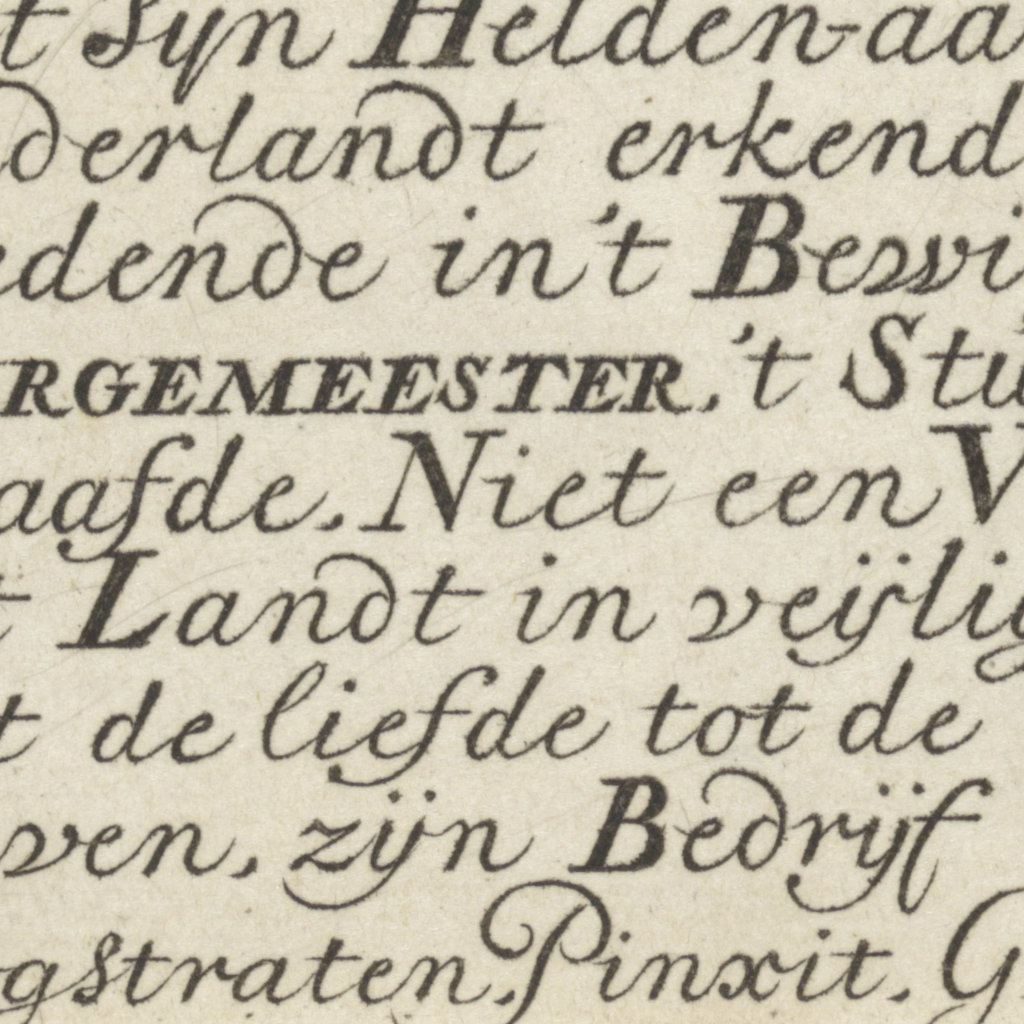 t Syn Helden-aa
derlandt erkend
edende in't Bewi
RGEMEESTER, 't Stu
aafde. Niet een V
t Landt in veÿlig
t de liefde tot de
ven, zÿn Bedrÿf
gstraten. Pinxit. G